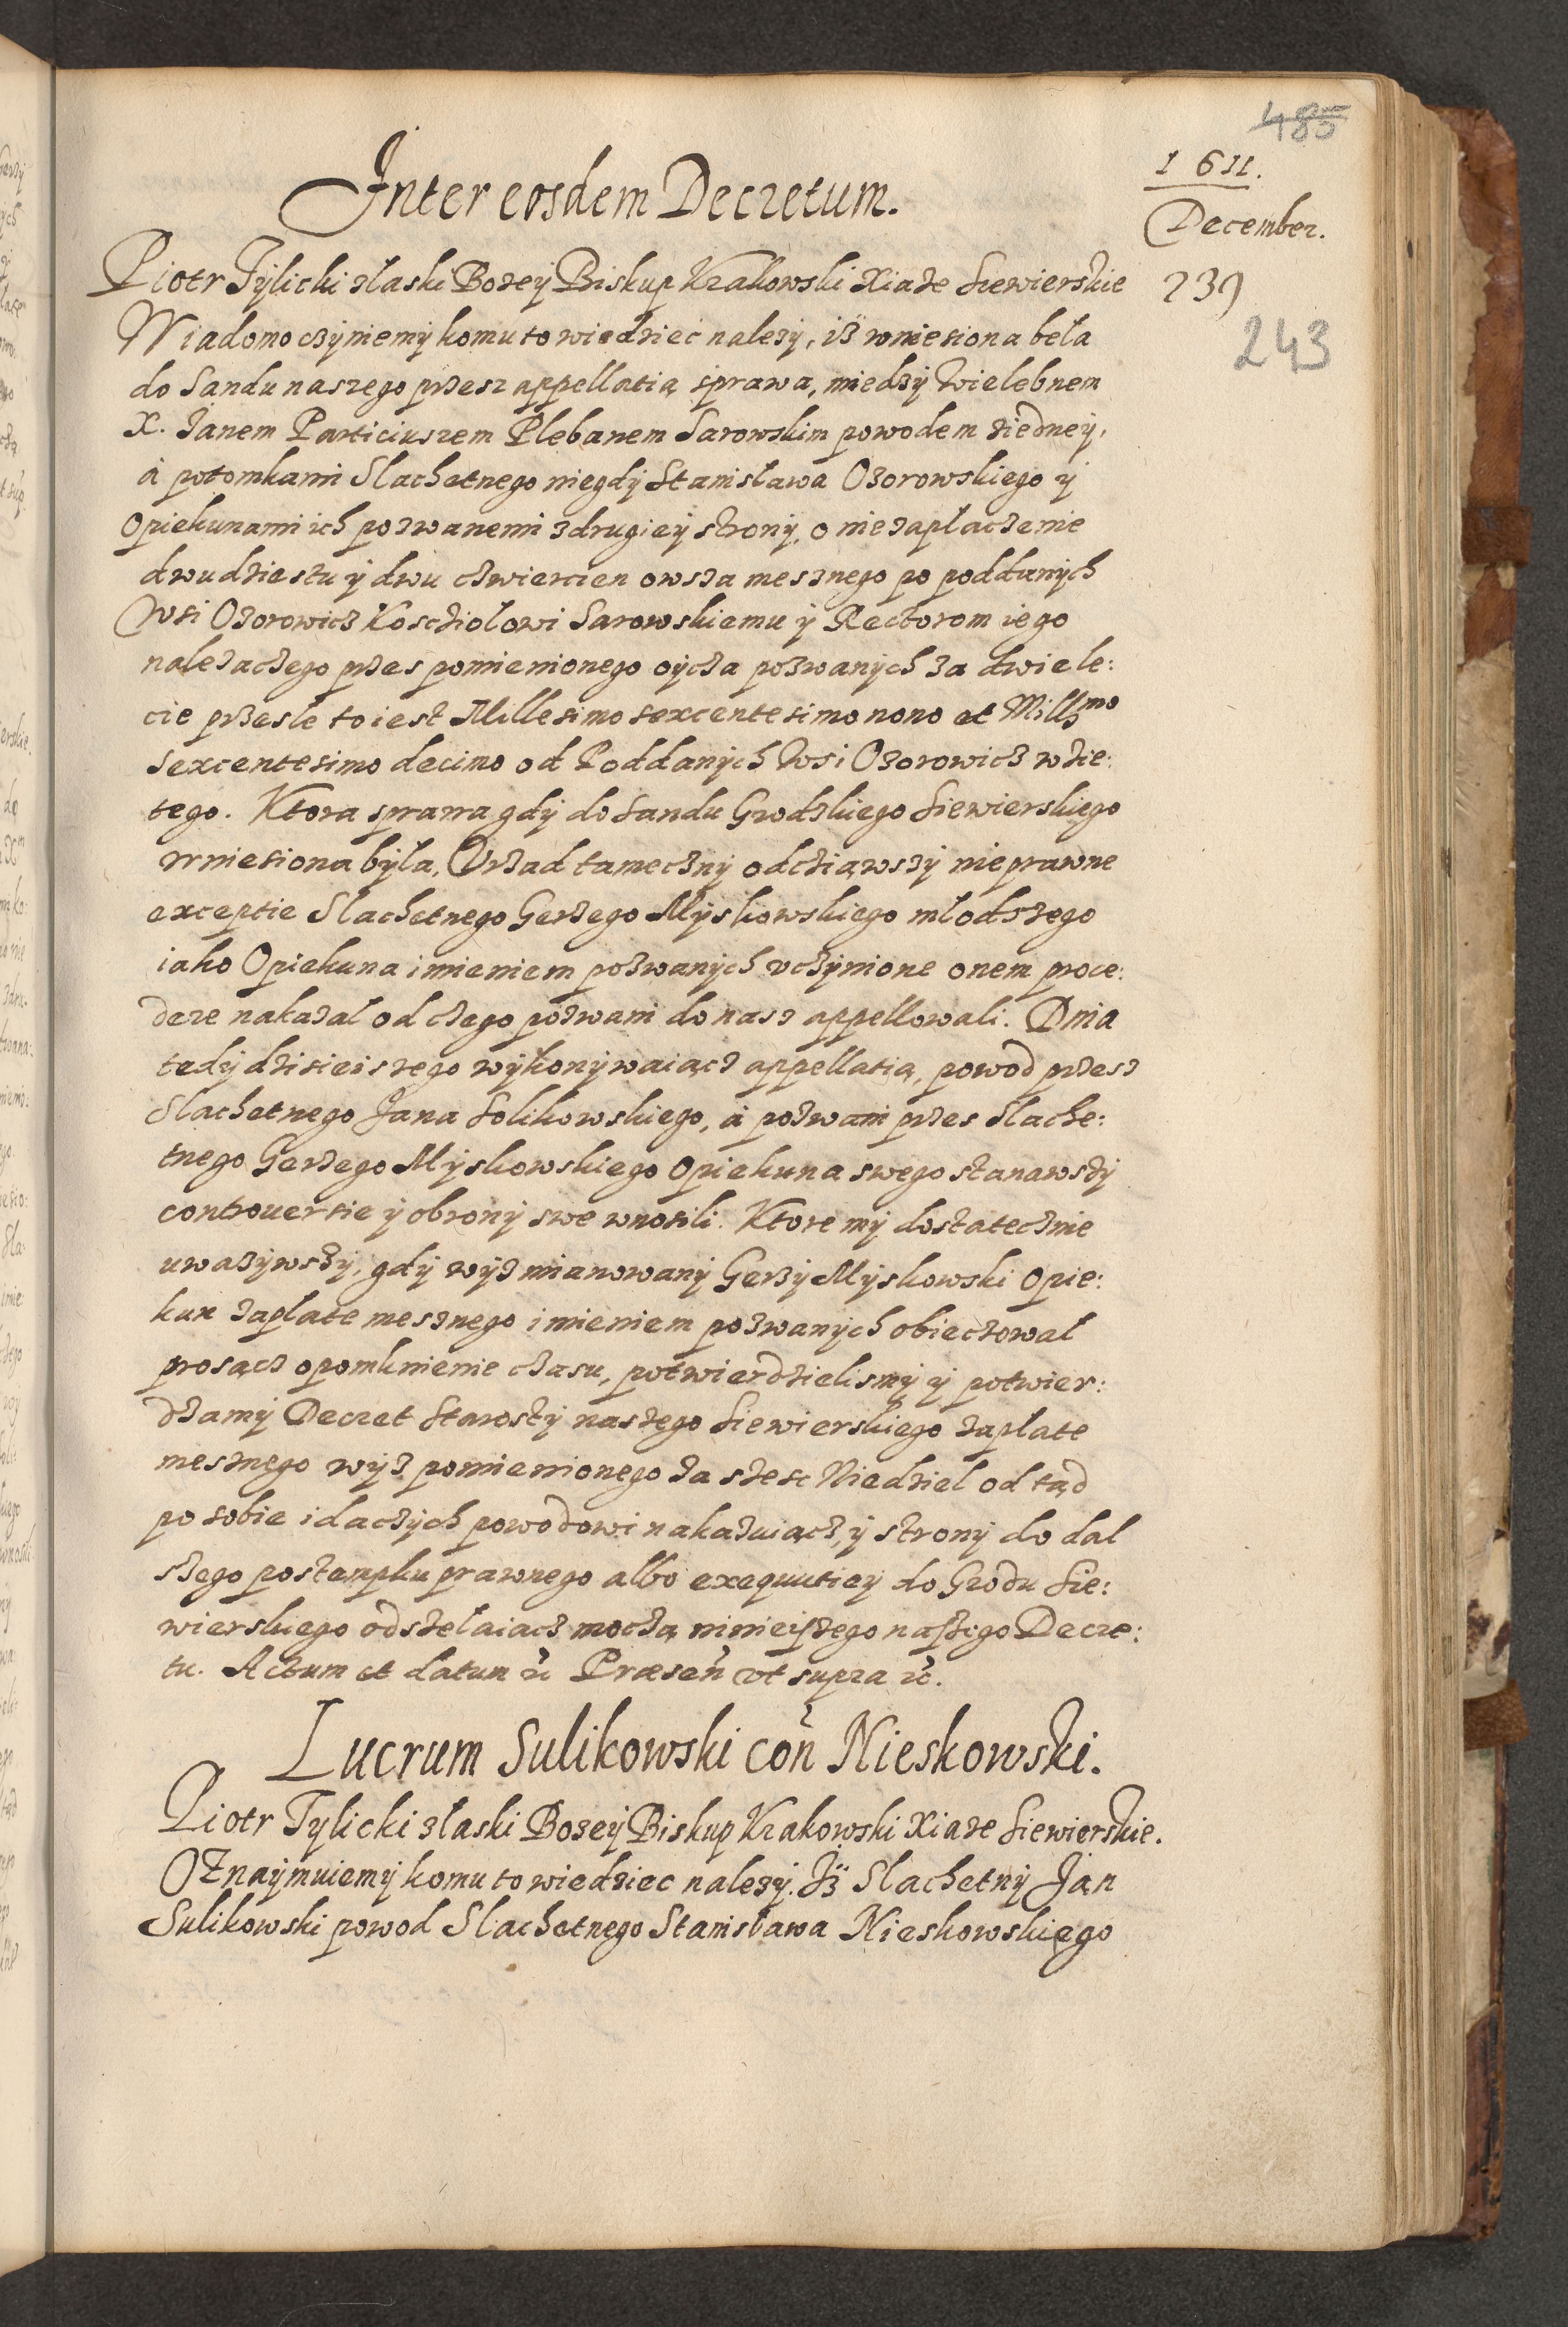 485
1611.
December.
239
243
Inter eosdem Decretum.
Piotr Tÿlicki złaski Bozeÿ Biskup Krakowski Xiaze Siewierskie
Wiadomo czÿniemÿ komu to wiedziec nalezÿ, iż wniesiona beła
do Sandu naszego przesz appellatią sprawa, miedzÿ Wielebnem
X. Janem Particiuszem Plebanem Sarowskim powodem ziedneÿ,
á potomkami Slachetnego niegdÿ Stanisława Ozorowskiego ÿ
Opiekunami ich pozwanemi zdrugieÿ stronÿ, o niezapłaczenie
dwudziestu ÿ dwu czwiercien owsza mesznego po poddanÿch
Wsi Ozorowicz Koscziolowi Sarowskiemu ÿ Rectorom iego
nalezaczego przes pomienionego oÿcza pozwanÿch za dwie le:
cie przesłe to iest Millesimo sexcentesimo nono et Millmo
sexcentesimo decimo od Poddanÿch Wsi Ozorowicz wzie:
tego. Ktora sprawa gdÿ do Sandu Grodzkiego Siewierskiego
wniesiona bÿla, Vrzad tamecznÿ odcziąwszÿ nieprawne
exceptie Slachetnego Gerzego Mÿskowskiego młodszego
iako Opiekuna imieniem pozwanÿch vczÿnione onem proce:
dere nakazał od czego pozwani do nasz appellowali. Dnia
tedÿ dzisieiszego wÿkonÿwaiącz appellatią, powod przesz
Slachetnego Jana Solikowskiego, á pozwani przes Slache:
tnego Gerzego Mÿskowskiego Opiekuna swego stanawszÿ
controuersie ÿ obronÿ swe wnosili. Ktore mÿ dostatecznie
uwazÿwszÿ, gdÿ wÿz mianowanÿ Gerzÿ Mÿskowski Opie:
kun zapłate mesznego imieniem pozwanÿch obieczował
proszącz opomknienie czasu, potwierdzielismÿ ÿ potwier:
dzamÿ Decret Starostÿ naszego Siewierskiego zapłate
mesznego wÿz pomienionego za szesc Niedziel od tąd
po sobie idaczÿch powodowi nakazuiącz, ÿ stronÿ do dal
szego postempku prawnego albo exequutieÿ do Grodu Sie:
wierskiego odszełaiacz moczą ninieiszego naszego Decre:
tu. Actum et datum &c Præsen vt supra &c.
Lucrum Sulikowski con Nieskowski.
Piotr Tylicki złaski Bozeÿ Biskup Krakowski Xiaze Siewierskie.
Oznaÿmuiemÿ komu to wiedziec nalezÿ. Iż Slachetnÿ Jan
Sulikowski powod Slachetnego Stanisława Nieskowskiego